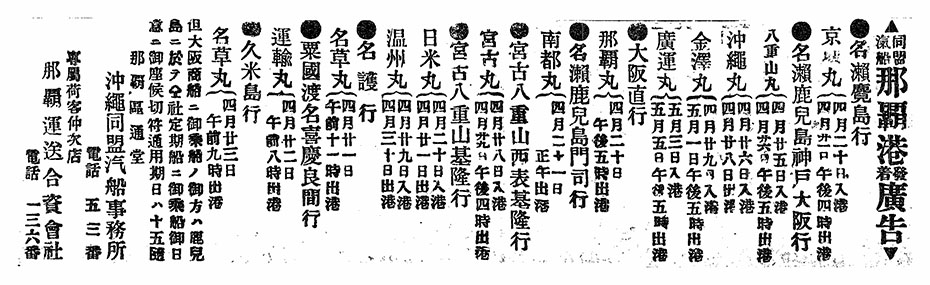 ▲同盟汽船那覇港發着廣告▼
●名瀬麑島行
京城丸(四月二十日入港
四月廿一日午後四時出港
●名瀬鹿兒島神戸大阪行
八重山丸(四月廿五日入港
四月廿六日午後五時出港
沖繩丸(四月廿六日入港
金澤丸(四月廿九日入港
五月一日午後四時出港
廣運丸(五月三日入港
五月五日午後五時出港
●大阪直行
那覇丸(四月二十日
午後五時出港
●名瀬鹿兒島門司行
南都丸(四月二十一日
正午出港
●宮古八重山西表基隆行
宮古丸(四月廿八日入港
四月廿九日午後四時出港
●宮古八重山基隆行
日米丸(四月二十日入港
四月廿二日出港
温州丸(四月廿九日入港
四月三十日出港
●名護行
名草丸(四月廿一日
午前十一時出港
●粟國渡名喜慶良間行
運輸丸(四月廿二日
午前八時出港
●久米島行
名草丸(四月廿三日
午前九時出港
但大阪商船ニ御乗船ノ御方ハ鹿兒
島ニ於テ仝社定期船ニ御乗船御日
意ニ御座候切符通用期日ハ十五日
那覇區通堂
沖繩同盟汽船事務所
電話 五三番
專屬荷客仲次店
那覇運送合資會社
電話 一三六番